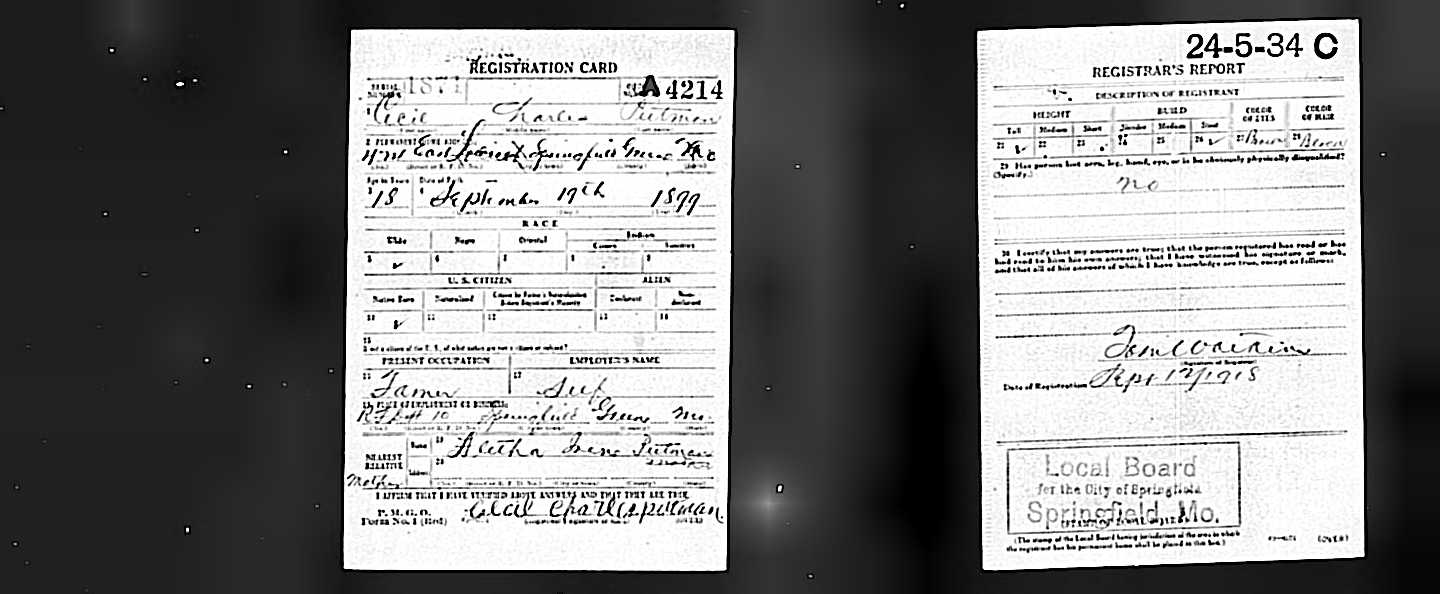 REGISTRATION CARD
SERIAL NUMBER 1871 A 4214
Cecil Charles Putman
2 PERMANENT HOME ADDRESS
East Springfield Greene Mo
Age in Years Date of Birth
3 18 4 September 19th 1899
RACE
White Negro Oriental Indian
Citizen
5 ✓ 6
U. S. CITIZEN ALIEN
Native Born Naturalized Citizen by Father's Naturalization Before Registrant's Majority Declarant Non-declarant
10 ✓ 11 12 13 14
15
If not a citizen of the U. S., of what nation are you a citizen or subject?
PRESENT OCCUPATION EMPLOYER'S NAME
Famer 17 Self
PLACE OF EMPLOYMENT OR BUSINESS:
10 Springfield Greene Mo.
NEAREST RELATIVE
Name 19 Aletha Irene Putman
Address 20
Mother
I AFFIRM THAT I HAVE VERIFIED ABOVE ANSWERS AND THAT THEY ARE TRUE
P. M. G. O.
Form No. 1 (Red) Cecil Charles putman
24-5-34 C
REGISTRAR'S REPORT
DESCRIPTION OF REGISTRANT
HEIGHT BUILD COLOR OF EYES COLOR OF HAIR
Tall Medium Short Slender Medium Stout
21 ✓ 22 23 24 25 26 ✓ 27 Brown 28 Brown
29 Has person lost arm, leg, hand, eye, or is he obviously physically disqualified?
(Specify.) no
30 I certify that my answers are true; that the person registered has read or has
had read to him his own answers; that I have witnessed his signature or mark,
and that all of his answers of which I have knowledge are true, except as follows:
(Signature of Registrar)
Date of Registration Sept 12/1918
Local Board
for the City of Springfield
Springfield, Mo.
(STAMP OF LOCAL BOARD)
(The stamp of the Local Board having jurisdiction of the area in which
the registrant has his permanent home shall be placed in this box.)
(OVER)